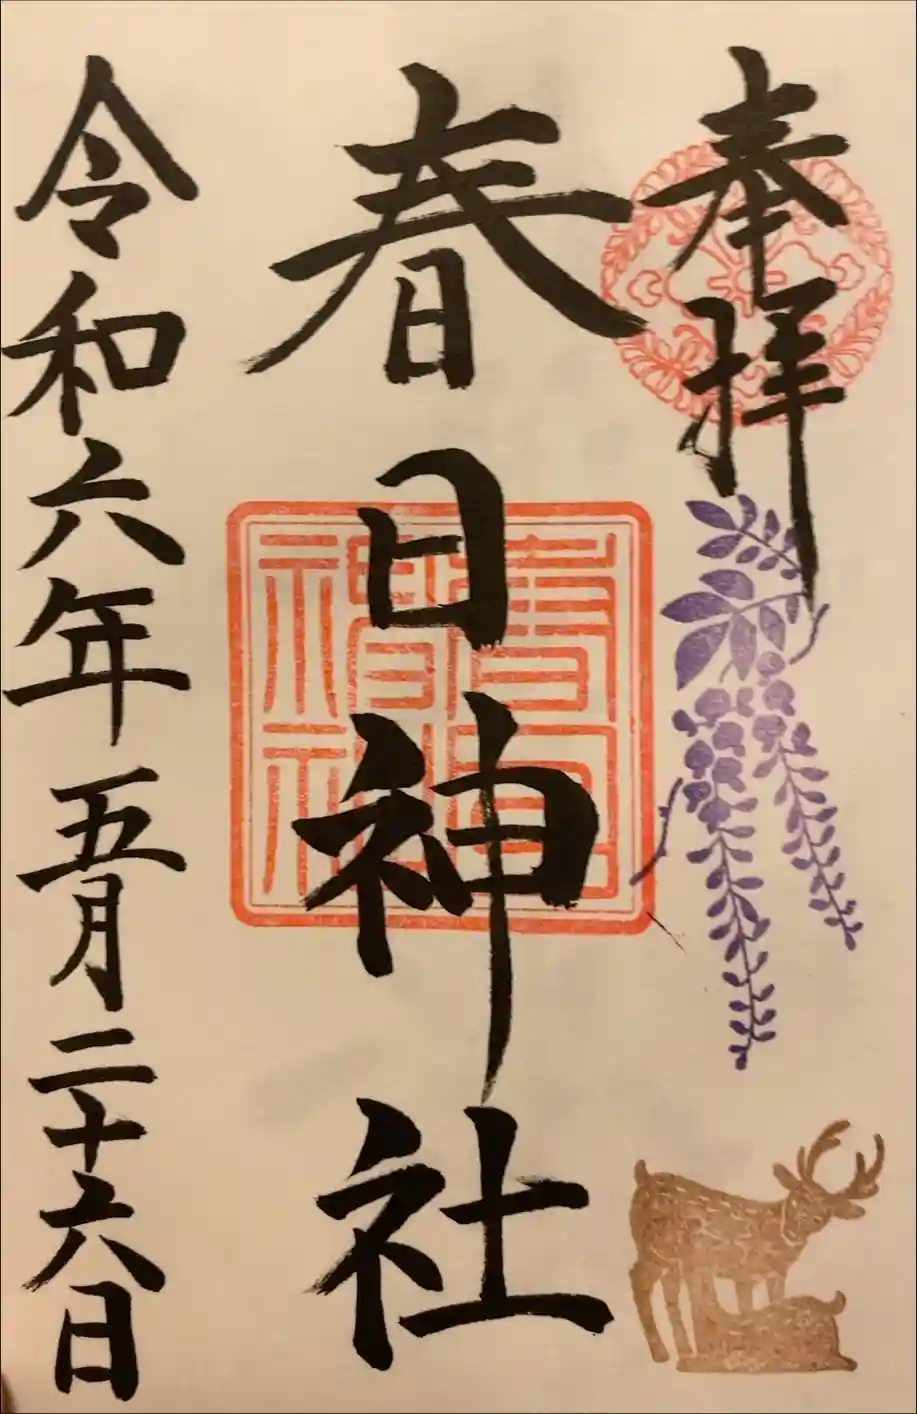 奉拝
春日神社
令和六年五月二十六日